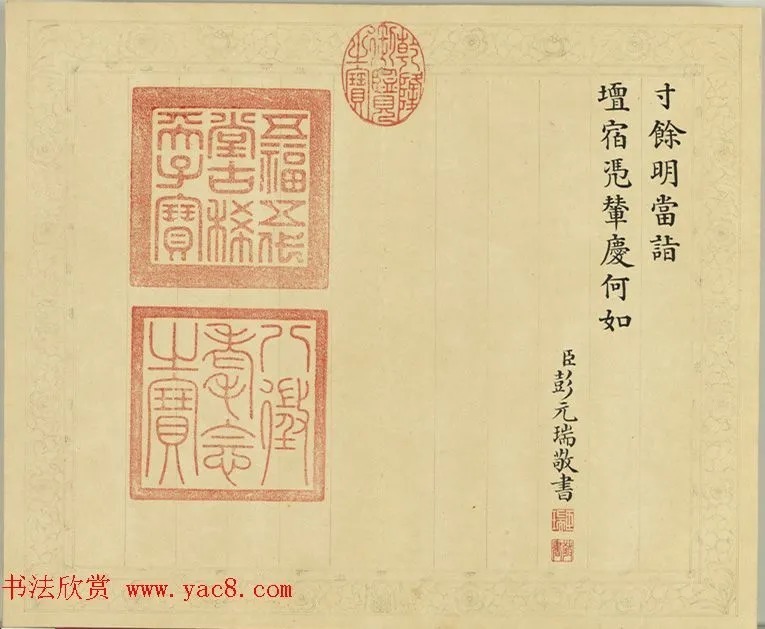 寸餘明當詣
壇宿凴輦慶何如
臣彭元瑞敬書
乾隆
御覽
之寶
五福五代
堂古稀
天子寶
八徵
耄念
之寶
书法欣赏 www.yac8.com